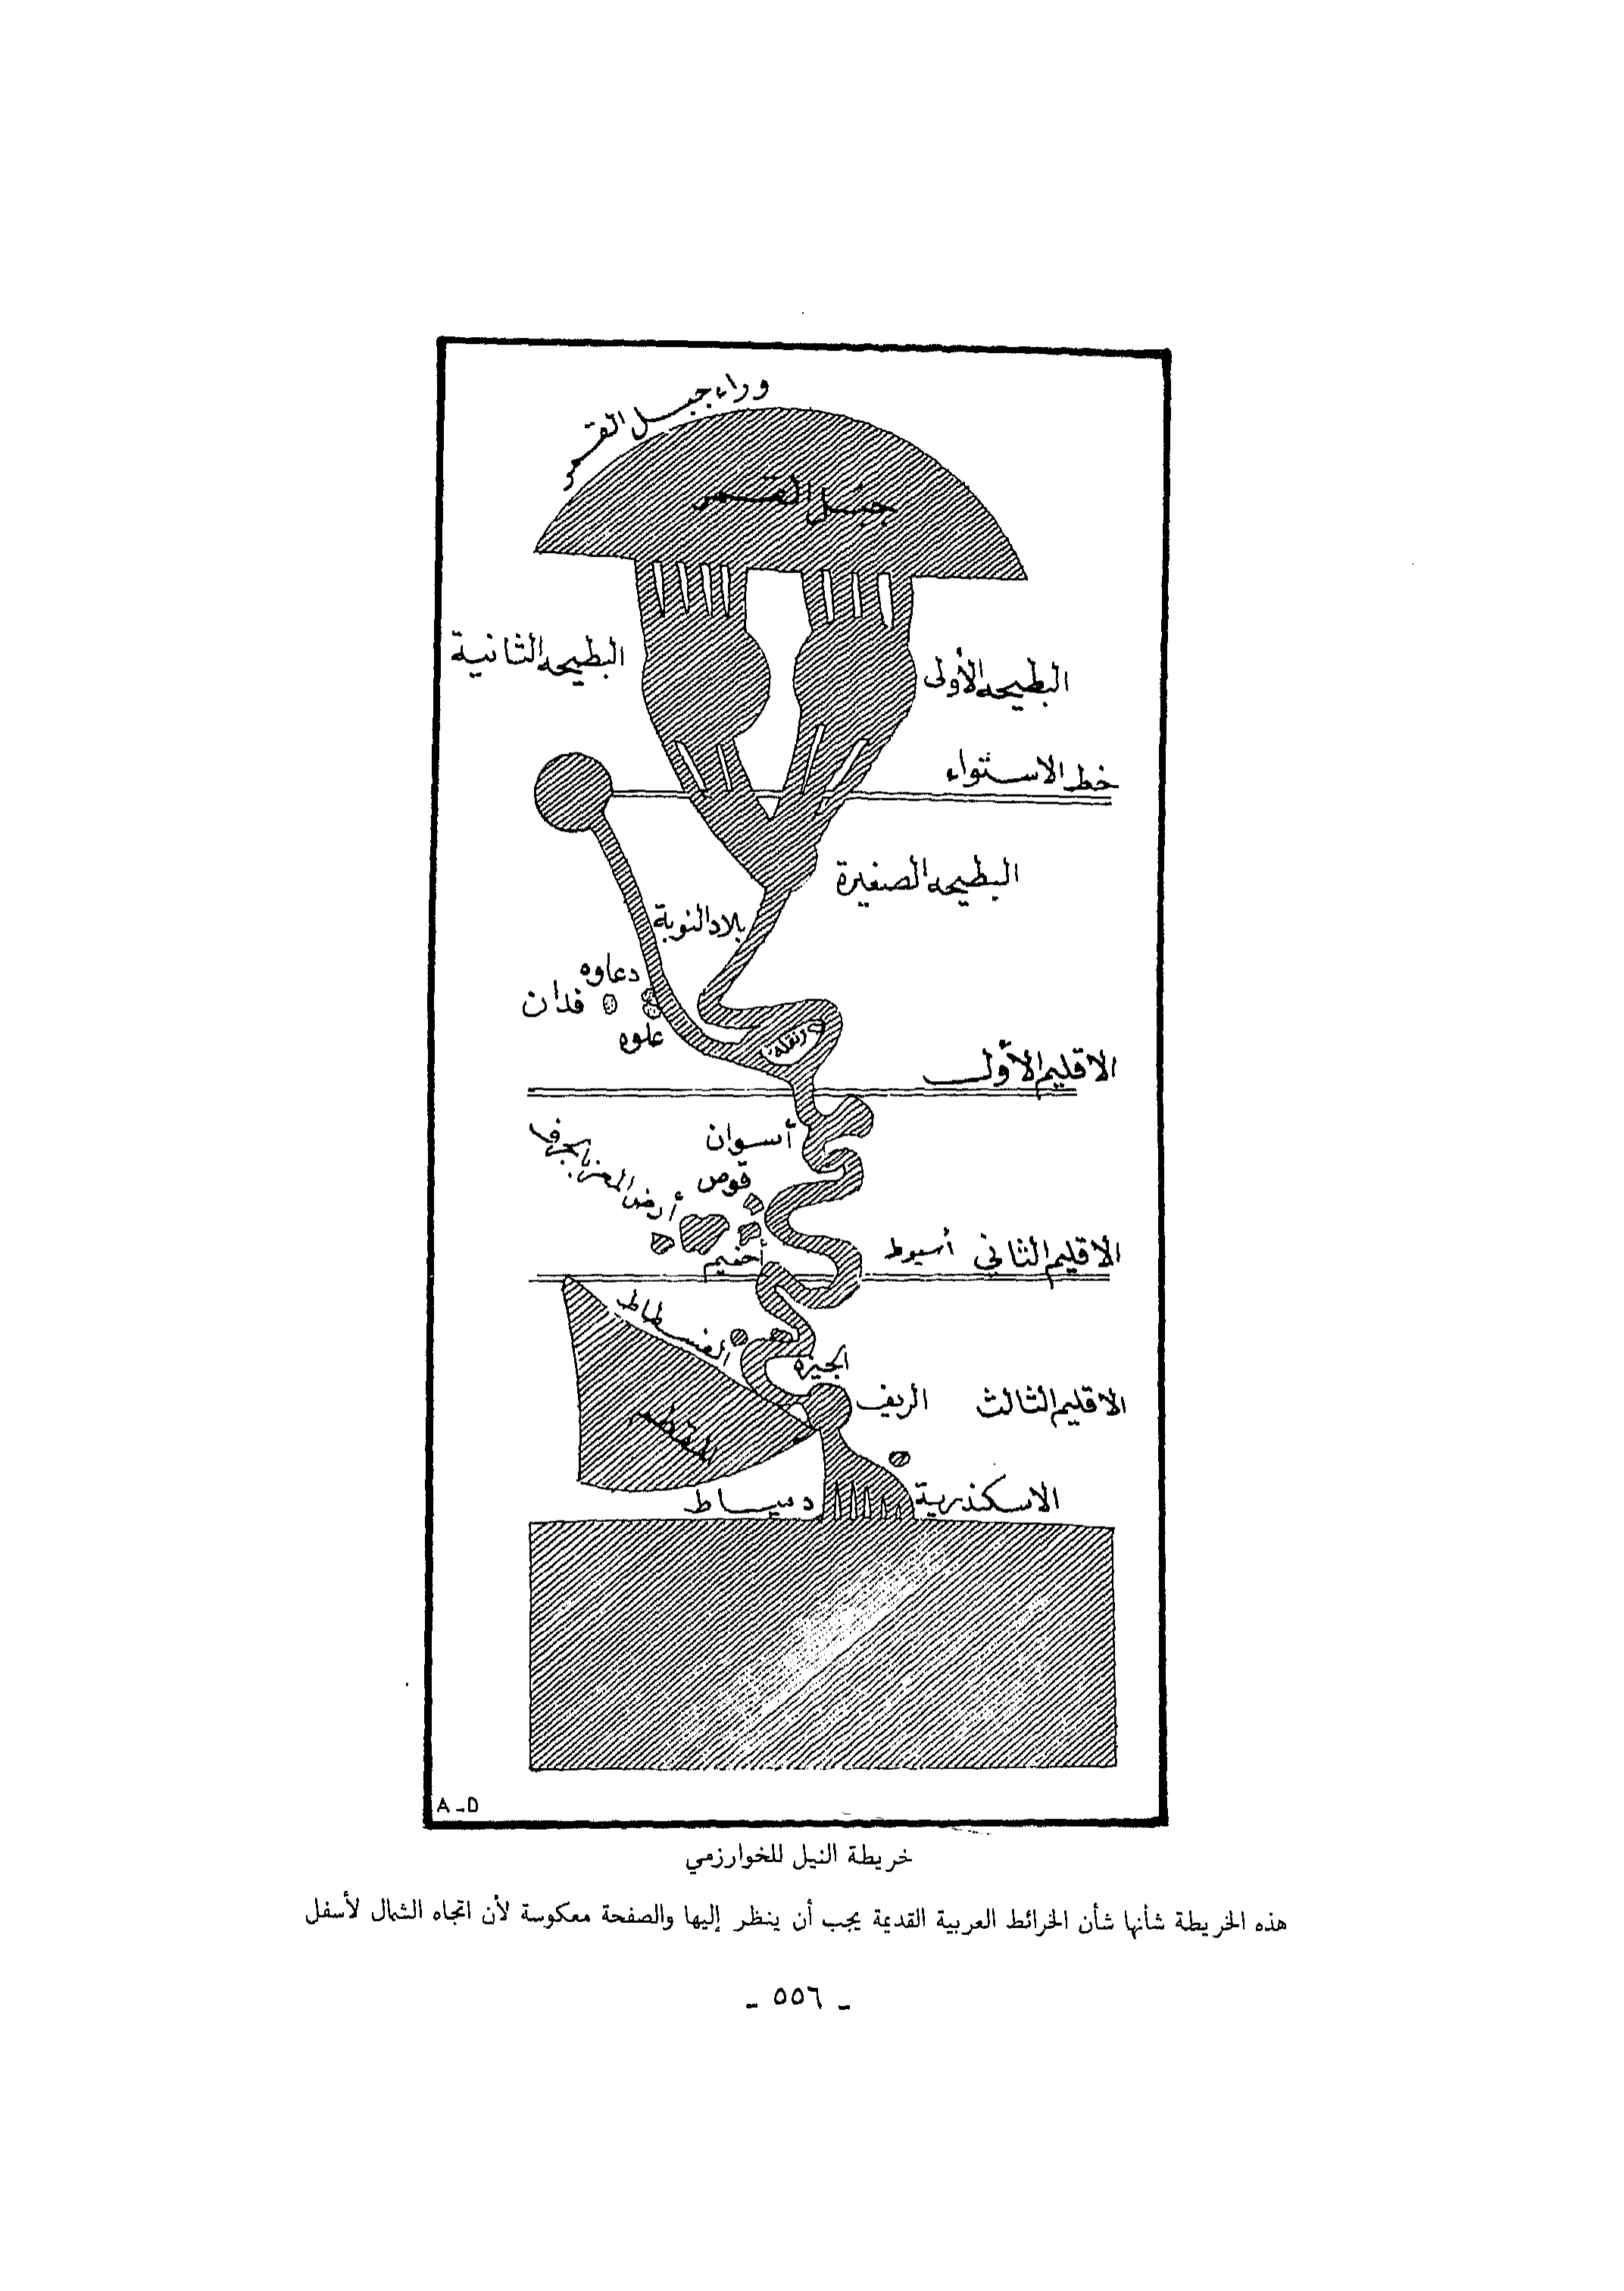 وراء جبل القمر
جبل القمر
البطيحه الأولى
البطيحه الثانية
خط الاستواء
البطيحه الصغيرة
بلاد النوبة
دعاوه
فدان
علوه
دنقلة
الاقليم الأول
أسوان
قوص
أرض المعز
أخميم
أسيوط
الاقليم الثاني
الفسطاط
الجيزه
الريف
الاقليم الثالث
المقطم
دمياط
الاسكندرية
A-D
خريطة النيل للخوارزمي
هذه الخريطة شأنها شأن الخرائط العربية القديمة يجب أن ينظر إليها والصفحة معكوسة لأن اتجاه الشمال لأسفل
- ٥٥٦ -